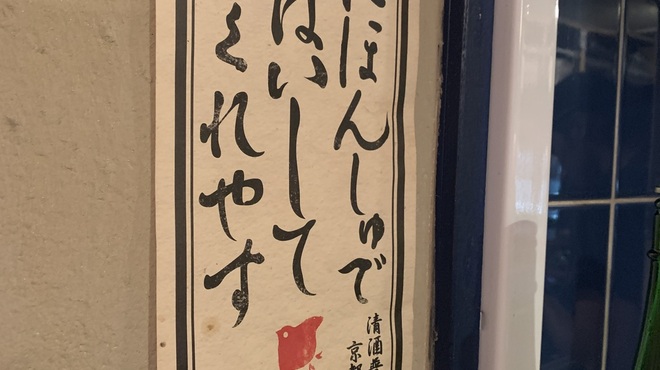 にほんしゅで
ぱいして
くれやす
清酒
京都